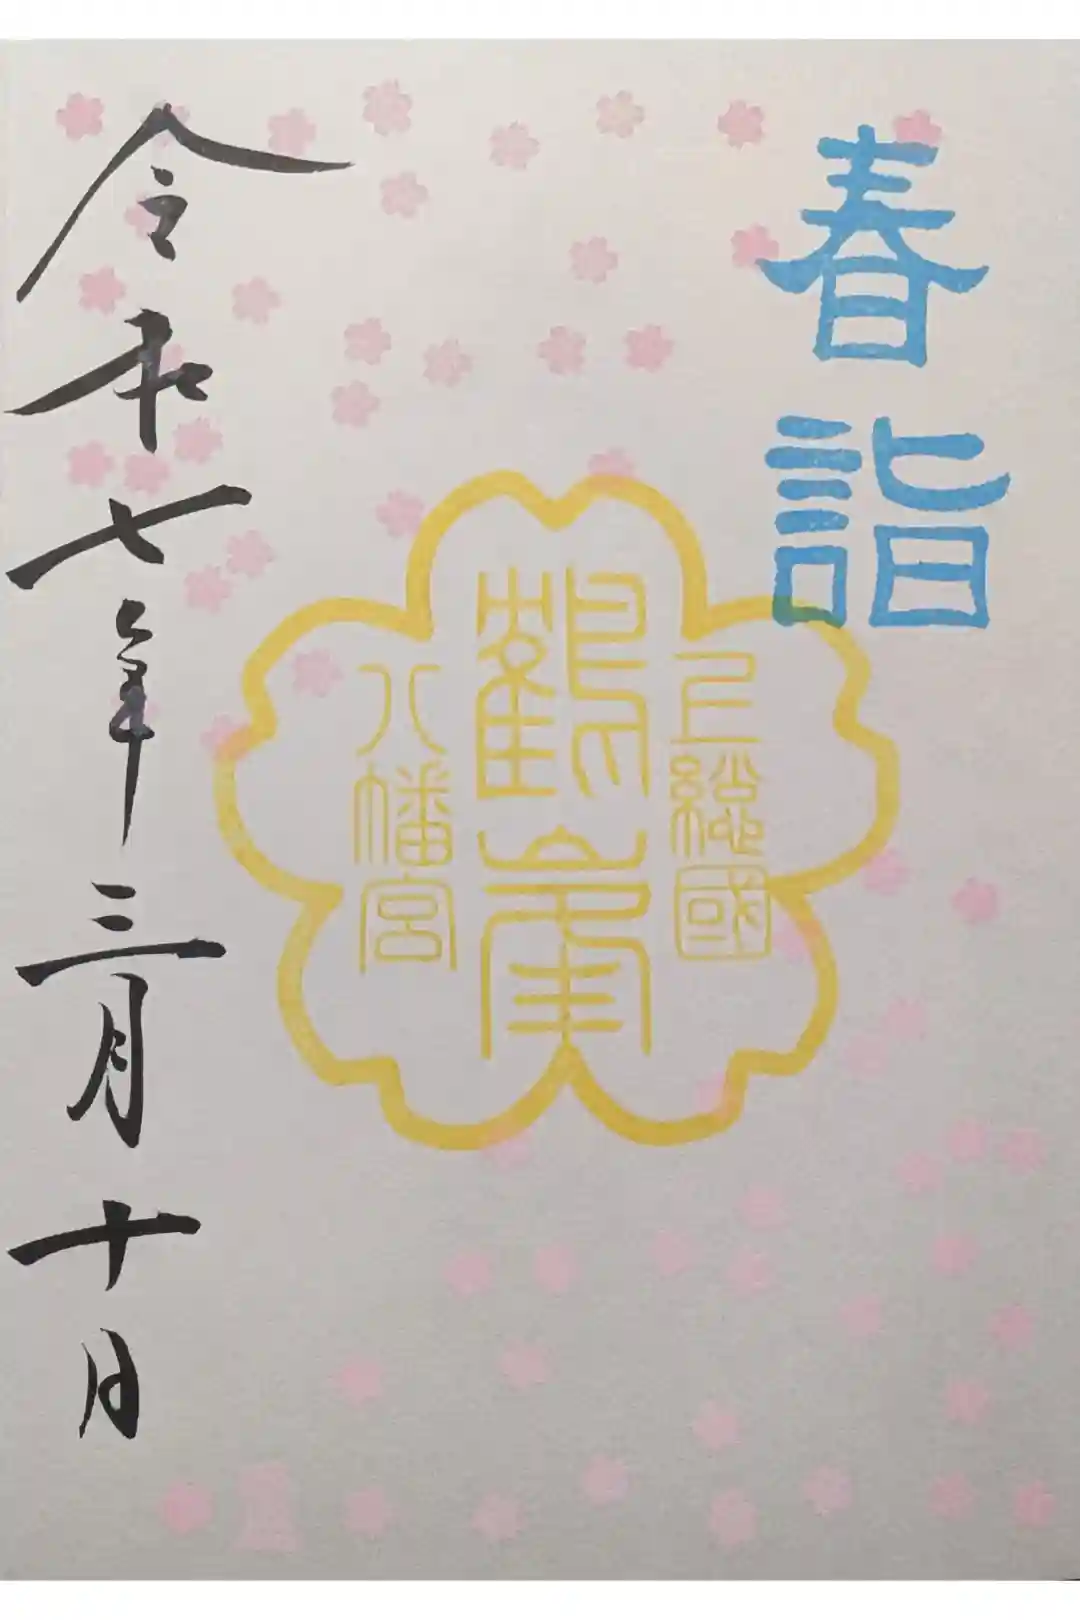 春詣
上総國
鶴峯
八幡宮
令和七年三月十日